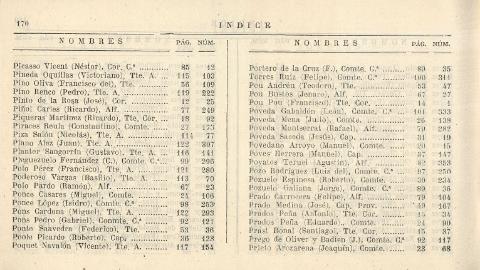 170
INDICE
NOMBRES PÁG. NÚM.
Picasso Vicent (Néstor), Cor. C.ª 85 12
Pineda Oquillas (Victoriano), Tte. A. 115 103
Pino Oliva (Francisco del), Tte. 56 109
Pino Renco (Pedro), Tte. A. 119 222
Pinto de la Rosa (José), Cor. 12 25
Piñol Carlos (Ricardo), Alf. 77 249
Piqueras Martínez (Ricardo), Tte. Cor. 18 92
Piraces (Constantino), Comte. 27 173
Pza Salón (Nicolás), Tte. A. 114 77
Plano Alez (Juan), Tte. 122 307
Planter Sangorrín (Gustavo), Tte. A. 116 141
Pleguezuelo Fernández (C.), Comte. C.ª 99 296
Polo Pérez (Francisco), Tte. 121 280
Poderoso Vargas (Basilio), Tte. A. 113 70
Polo Pardo (Ramón), Alf. 67 23
Ponce Casares (Miguel), Comte. 24 106
Ponce López (Isidro), Comte. C.ª 98 259
Pons Cardona (Miguel), Tte. A. 122 293
Pons Pedro (Gabriel), Comte. C.ª 92 121
Ponte Saavedra (Federico), Tte. 53 36
Poole Picardo (Roberto), Cap. 36 128
Poquet Navalón (Vicente), Tte. A. 117 154
NOMBRES PÁG. NÚM.
Portero de la Cruz (F.), Comte. C.ª 89 35
Torres Ruiz (Felipe), Comte. C.ª 100 311
Pou Andréu (Teodoro), Tte. 53 47
Pou Bustos (Jenaro), Alf. 67 27
Pou Pou (Francisco), Tte. Cor. 14 1
Poveda Gabaldón (León), Comte. C.ª 101 333
Poveda Mena (Julio), Comte. 26 138
Poveda Montserrat (Rafael), Alf. 79 282
Poveda Sacoda (Jesús), Cap. 31 19
Povedano Arroyo (Manuel), Comte. 20 15
Poves Herrera (Manuel), Cap. 37 147
Poyatos Teruel (Agustín), Alf. 82 353
Pozo Rodríguez (Luis del), Comte. C.ª 97 250
Pozuelo Espinosa (Roberto), Comte. 30 234
Pozuelo Galiana (Jorge), Comte. C.ª 89 36
Prado Carretero (Felipe), Alf. 79 104
Prado Medina (José), Cap. Prov. 49 167
Prados Peña (Antonio), Tte. Cor. 15 34
Prados Peña (Eduardo), Comte. 24 90
Prast Bonal (Santiago), Tte. Cor. 15 87
Prego de Oliver y Badien (J.), Comte. C.ª 92 117
Prieto Arozarena (Joaquín), Comte. 23 68